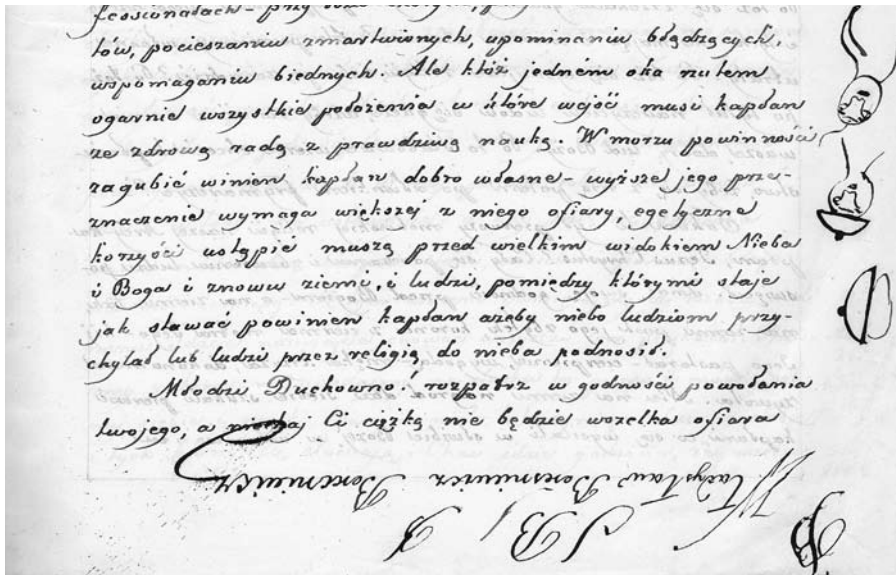 fessionałach - przy
tów, pocieszaniu zmartwionych, upominaniu błądzących,
wspomaganiu biednych. Ale któż jedném oka rzutem
ogarnie wszystkie położenia w które wejść musi kapłan
ze zdrową radą z prawdziwą nauką. W morzu powinności
zagubić winien kapłan dobro własne - wyższe jego prze-
znaczenie wymaga większej z niego ofiary, egoistyczne
korzyści ustąpić muszą przed wielkim widokiem Nieba
i Boga i znowu ziemi, i ludzi, pomiędzy którymi staje
jak stawać powinien kapłan ażeby niebo ludziom przy-
chylał lub ludzi przez religią do nieba podnosił.
Młodzi Duchowna! rozpatrz w godności powołania
twojego, a niechaj Ci ciężką nie będzie wszelka ofiara
Władysław
B
S B